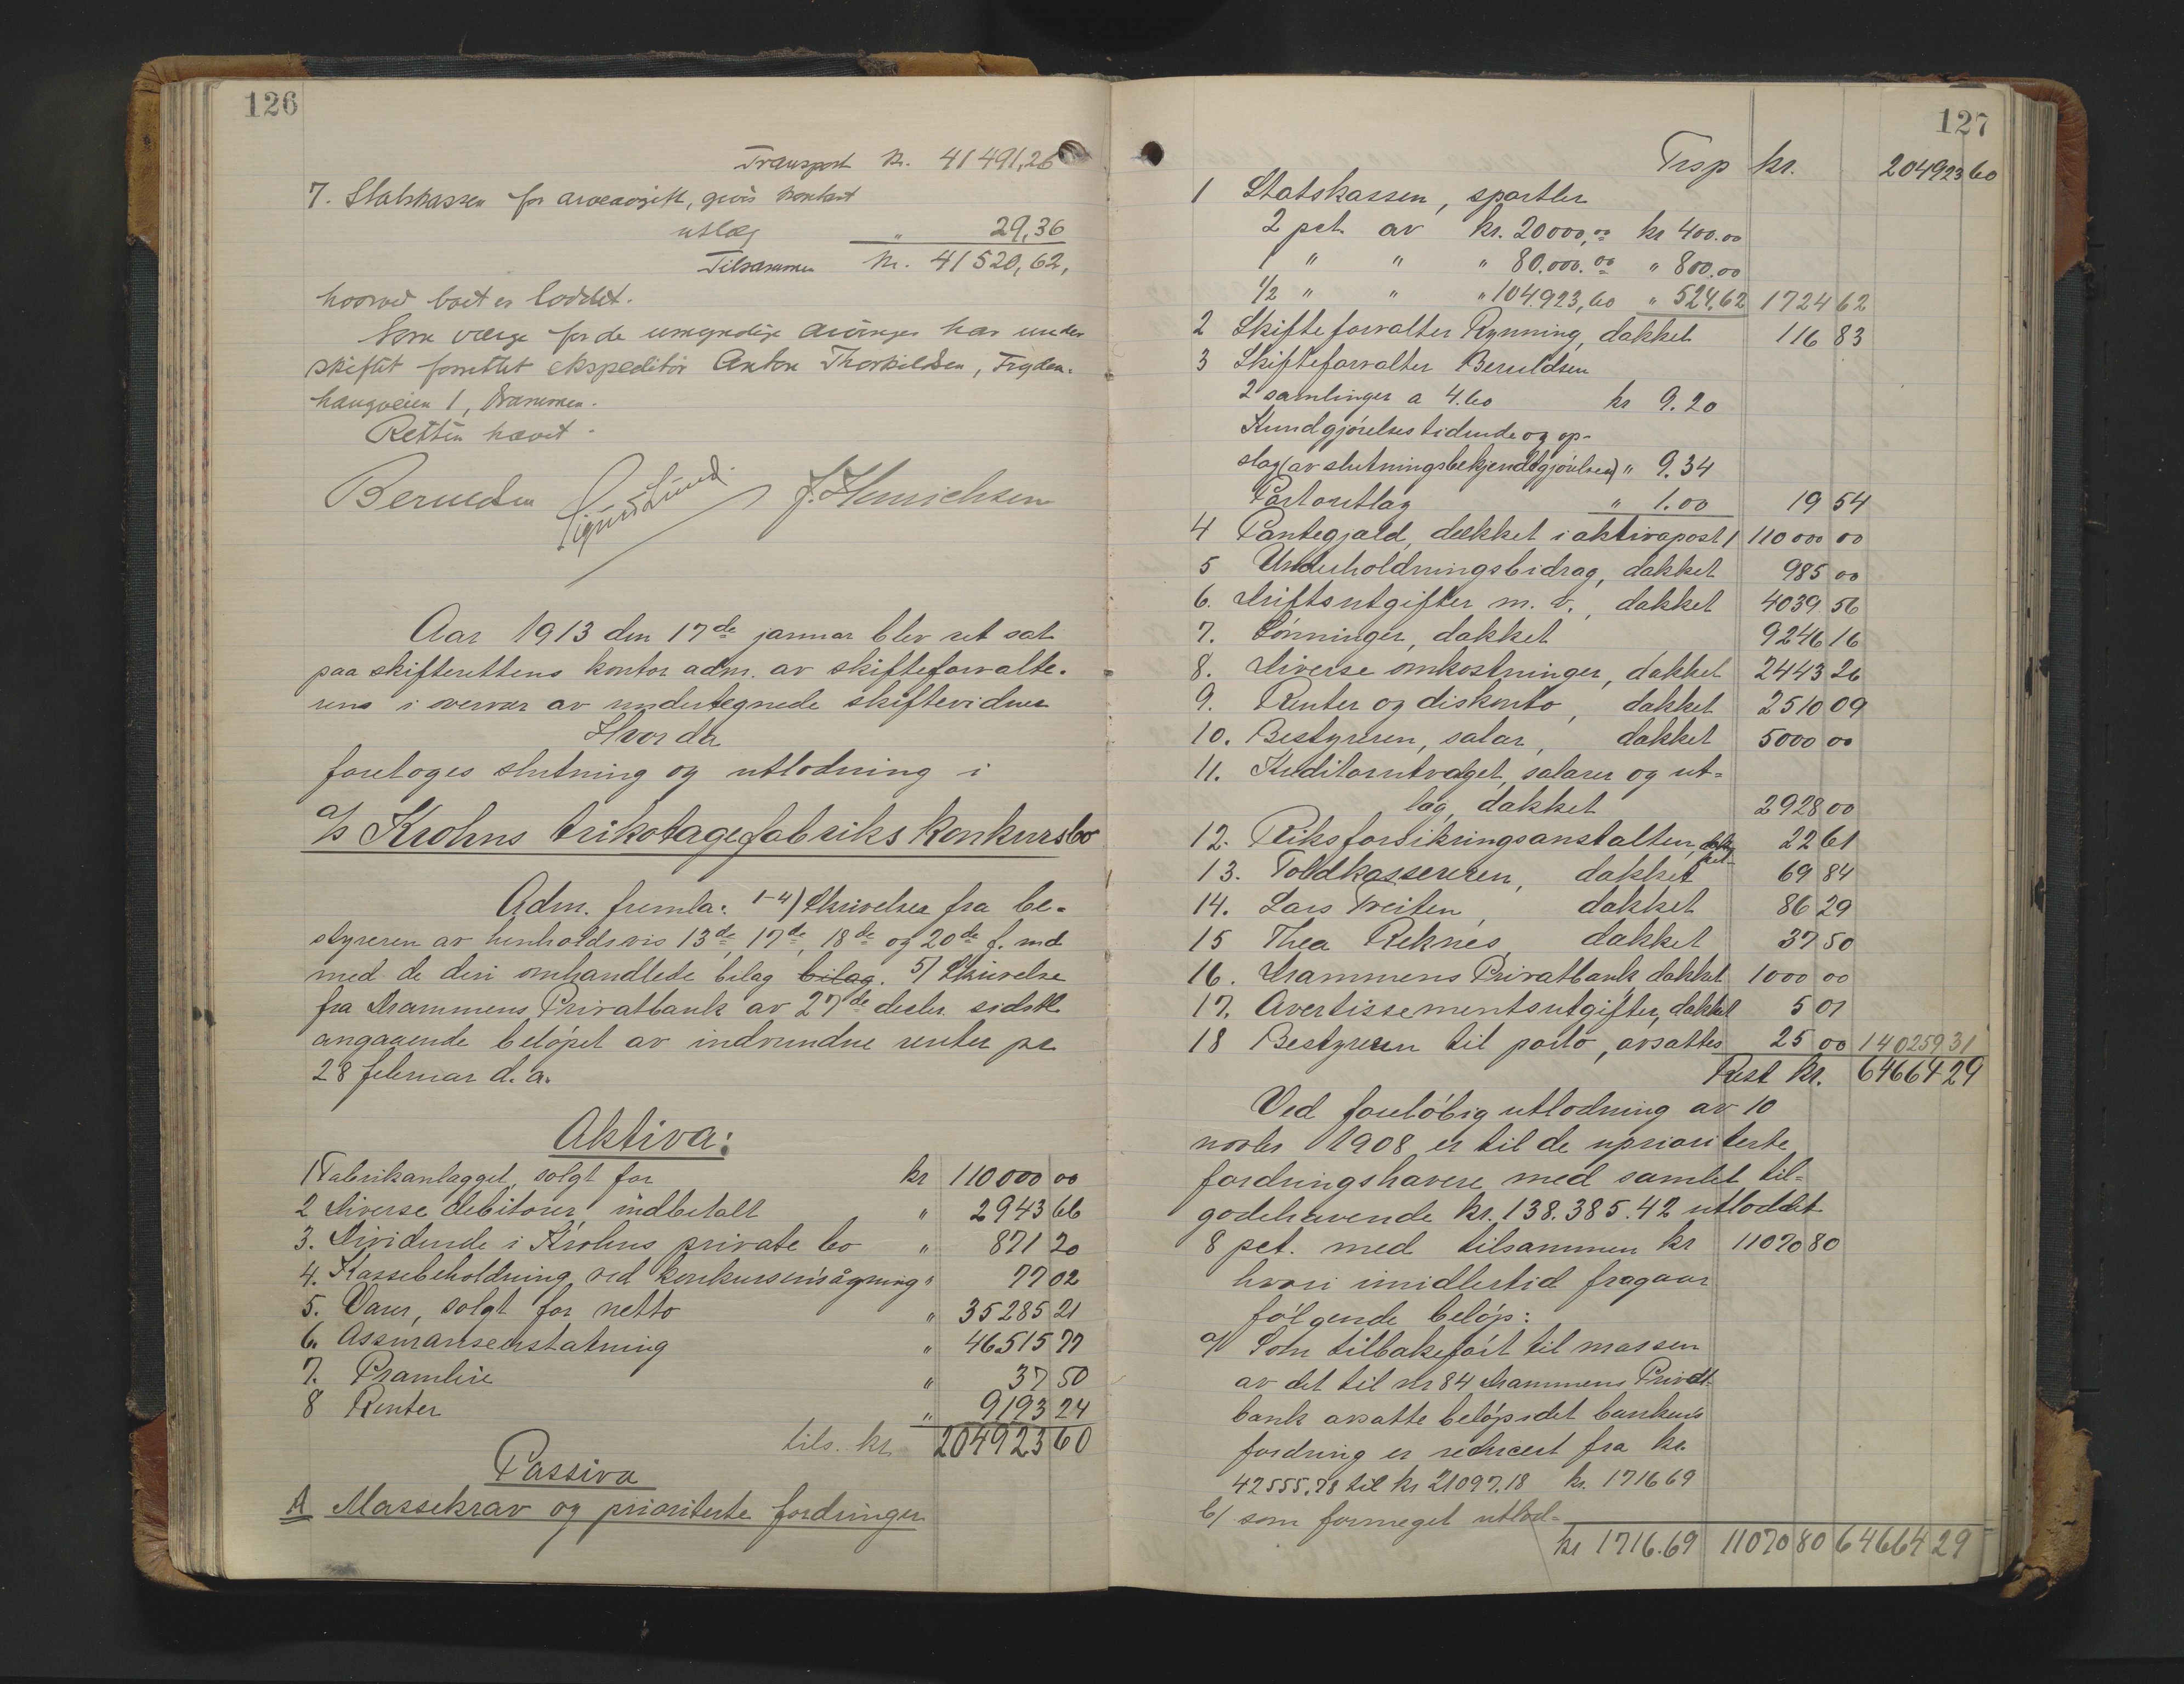 126
Transport kr. 41491,26
7. Statskassen for arveavgift, givis kontant
utlæg " 29,36
Tilsammen kr. 41520,62,
hvorved boet er loddet.
Som værge for de umyndige arvinger har under
skiftet forrettet ekspeditør Anton Thorkildsen, Frydenhaugveien 1, Drammen.
Retten hævet.
Beruldsen Sigurd Lund J. Hinrichsen
Aar 1913 den 17de januar blev ret sat
paa skifterettens kontor adm. av skifteforvalteren i overvær av undertegnede skiftevidner
Hvorda
foretoges slutning og utlodning i
a/s Krohns trikotagefabriks konkursbo
Adm. fremla: 1-4) Skrivelser fra be=
styreren av henholdsvis 13de, 17de, 18de og 20de f. md
med de deri omhandlede bilag bilag. 5) Skrivelse
fra Drammens Privatbank av 27de decbr. sidstl.
angaaende beløpet av indvundne renter pr
28 februar d. a.
Aktiva:
1 Fabrikanlægget, solgt for kr 110000 00
2 Diverse debitorer, indbetalt " 2943 66
3. Dividende i Krohns private bo " 871 20
4. Kassebeholdning ved konkursens åpning " 77 02
5. Varer, solgt for netto " 35285 21
6. Assuranseerstatning " 46515 77
7. Pramleie " 37 50
8 Renter " 9193 24
tils. kr 204923 60
Passiva
A Massekrav og prioriterte fordringer
127
Trsp kr. 204923 60
1 Statskassen, sportler
2 pct av kr. 20000,00 kr 400.00
1 " " " 80.000.00 " 800.00
1/2 " " " 104.923,60 " 524,62 1724 62
2 Skifteforvalter Rynning, dækket 116 83
3 Skifteforvalter Beruldsen
2 samlinger a 4.60 kr 9.20
Kundgjørelsestidende og op-
slag (av slutningsbekjendtgjørelsen) " 9.34
Portoutlæg " 1.00 19 54
4 Pantegjæld, dækket i aktivapost 1 110000 00
5 Underholdningsbidrag, dækket 985 00
6. Driftsutgifter m. v., dækket 4039 56
7. Lønninger, dækket 9246 16
8. Diverse omkostninger, dækket 2443 26
9. Renter og diskonto, dækket 2510 09
10. Bestyreren, salær, dækket 5000 00
11. Kreditorutvalget, salærer og ut=
læg, dækket 2928 00
12. Riksforsikringsanstalten, dæk-
ket 22 61
13. Toldkassereren, dækket 69 84
14. Lars Treiten, dækket 86 29
15 Thea Reknes, dækket 37 50
16. Drammens Privatbank, dækket 1000 00
17. Avertissementsutgifter, dækket 5 01
18 Bestyreren til porto, avsættes 25 00 140259 31
Rest kr. 64664 29
Ved foreløbig utlodning av 10
novbr 1908 er til de uprioriterte
fordringshavere med samlet til=
godehavende kr. 138.385.42 utloddet
8 pct. med tilsammen kr 11070 80
hvori imidlertid fragaar
følgende beløp:
a/ Som tilbakeført til massen
av det til nr 84 Drammens Privat-
bank avsatte beløp idet bankens
fordring er reducert fra kr.
42555.78 til kr 21097.18 kr. 1716 69
b/ som formeget utlod=
kr 1716.69 11070 80 64664 29